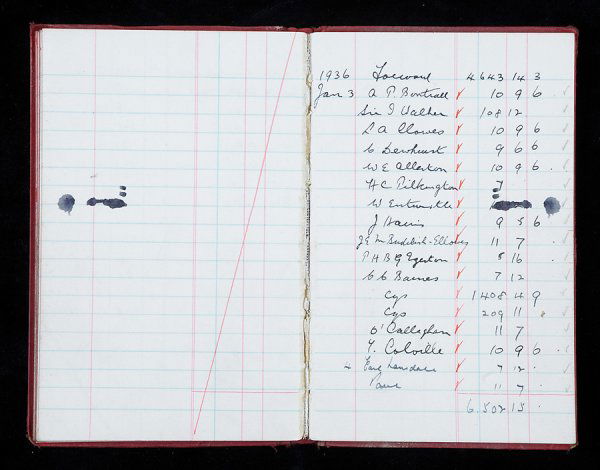 1936 Forward 4643 14 3
Jan 3 A P. Boutall 10 9 6
Sir I Walker 108 12
L A Clowes 10 9 6
C Dewhurst 9 6 6
W E Allerton 10 9 6 .
H C Pilkington 7
W Entwistle
J Harris 9 5 6
11 7 .
P H B G Egerton 8 16 .
C C Barnes 7 12
Cgs 1408 4 9
Cgs 209 11
O'Callaghan 11 7
T. Colville 10 9 6
4 Earl Lonsdale 7 12 .
11 7 .
6.502 15 .